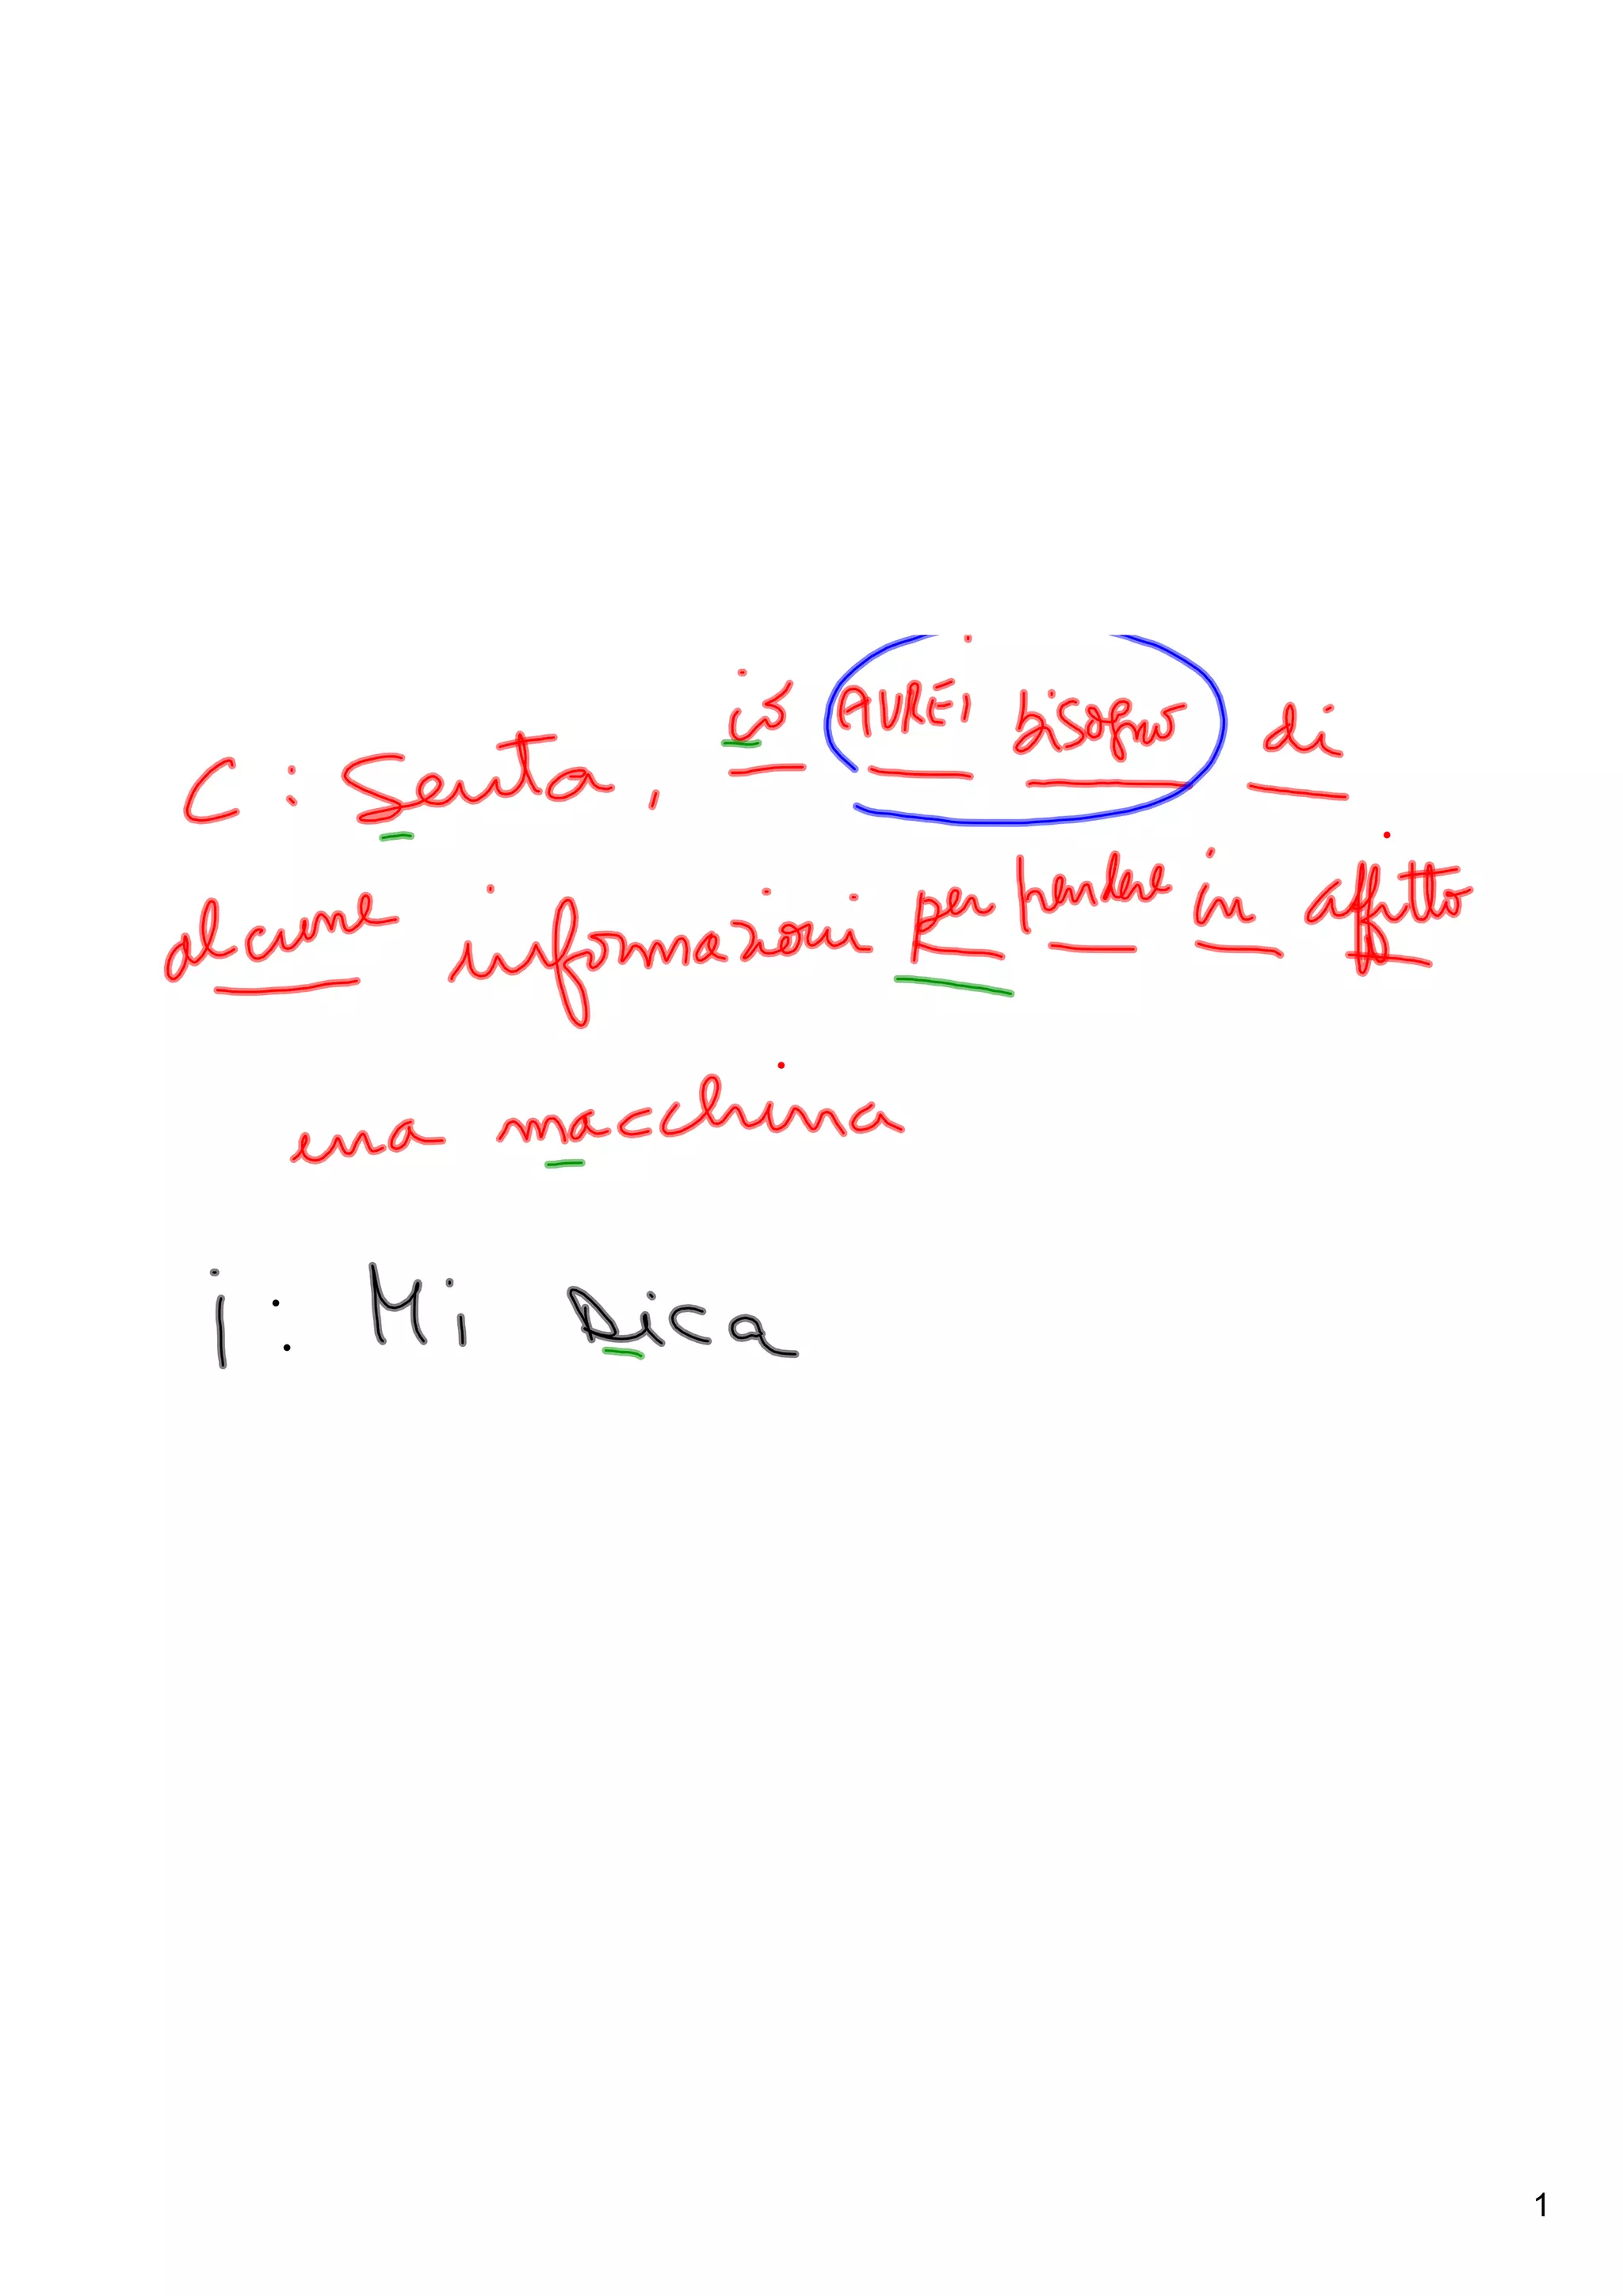 C: Senta, io AVREi bisogno di
alcune informazioni per prendere in affitto
una macchina
i: Mi Dica
1